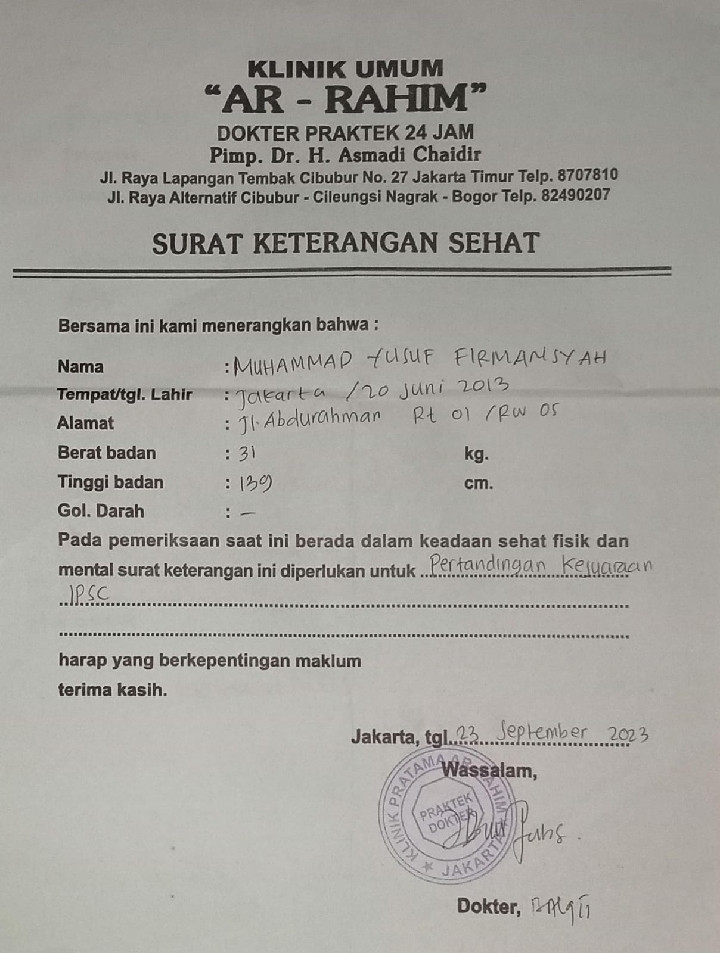 KLINIK UMUM
“AR - RAHIM”
DOKTER PRAKTEK 24 JAM
Pimp. Dr. H. Asmadi Chaidir
Jl. Raya Lapangan Tembak Cibubur No. 27 Jakarta Timur Telp. 8707810
Jl. Raya Alternatif Cibubur - Cileungsi Nagrak - Bogor Telp. 82490207
SURAT KETERANGAN SEHAT
Bersama ini kami menerangkan bahwa :
Nama : MUHAMMAD YUSUF FIRMANSYAH
Tempat/tgl. Lahir : Jakarta / 20 Juni 2013
Alamat : Jl. Abdurahman Rt 01 / RW 05
Berat badan : 31 kg.
Tinggi badan : 139 cm.
Gol. Darah : —
Pada pemeriksaan saat ini berada dalam keadaan sehat fisik dan
mental surat keterangan ini diperlukan untuk Pertandingan Kejuaraan
IPSC
harap yang berkepentingan maklum
terima kasih.
Jakarta, tgl. 23 September 2023
Wassalam,
KLINIK PRATAMA AR RAHIM
PRAKTEK
DOKTER
JAKARTA
Dokter,